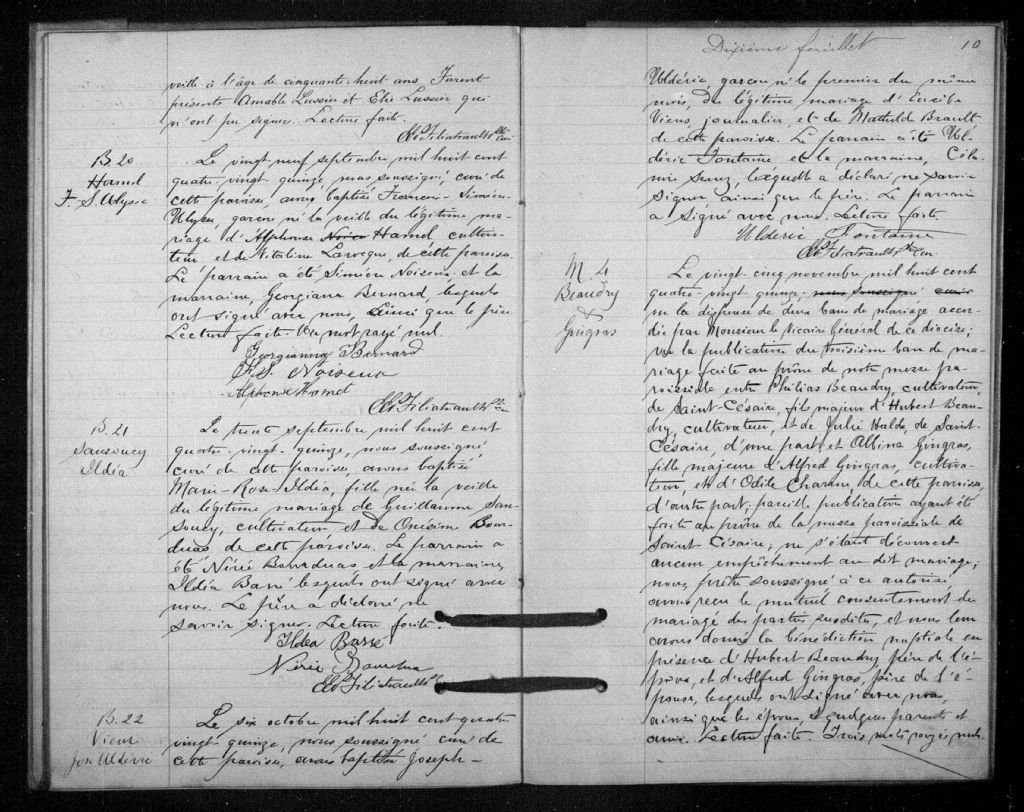 veille à l'âge de cinquante-huit ans. Furent
présents Amable Lussier et Elie Lussier qui
n'ont pu signer. Lecture faite.
Ed. Filiatrault Ptre Cur.
B. 20
Hamel
F. S. Ulysse
Le vingt neuf septembre mil huit cent
quatre-vingt quinze, nous soussigné, curé de
cette paroisse, avons baptisé François-Siméon-
Ulysse garçon né la veille du légitime ma-
riage d'Alphonse Hamel cultiva-
teur et de Vitaline Larocque, de cette paroisse.
Le parrain a été Siméon Noiseux et la
marraine, Georgiana Bernard, lesquels
ont signé avec nous, ainsi que le père.
Lecture faite. Un mot rayé nul.
Georgianna Bernard
F. S. Noiseux
Alphonse Hamel
Ed. Filiatrault Ptre Cu
B. 21
Sansoucy
Ildéa
Le trente septembre mil huit cent
quatre-vingt-quinze, nous soussigné,
curé de cette paroisse, avons baptisé
Marie-Rose-Ildéa, fille née la veille
du légitime mariage de Guillaume San-
soucy, cultivateur et de Onésime Bour-
duas de cette paroisse. Le parrain a
été Nérée Bourduas et la marraine,
Ildéa Barré lesquels ont signé avec
nous. Le père a déclaré ne
savoir signer. Lecture faite.
Ildea Barré
Nérée Bourdua
Ed. Filiatrault
B. 22
Viens
Jos. Uldéric
Le six octobre mil huit cent quatre
vingt-quinze, nous soussigné curé de
cette paroisse, avons baptisé Joseph-
Dixième feuillet
10
Uldéric garçon né le premier du même
mois, du légitime mariage d'Eusèbe
Viens, journalier, et de Mathilde Brault
de cette paroisse. Le parrain a été Ul-
déric Fontaine et la marraine,
lesquels a déclaré ne savoir
signer ainsi que le père. Le parrain
a signé avec nous. Lecture faite
Ulderic Fontaine
Ed. Filiatrault Ptre Cur.
M. 4
Beaudry
&
Gingras
Le vingt-cinq novembre mil huit cent
quatre-vingt quinze, nous soussigné curé
vu la dispense de deux bans de mariage accor-
dée par Monsieur le Vicaire Général de ce diocèse;
vu la publication du troisième ban de ma-
riage faite au prône de notre messe pa-
roissiale entre Philias Beaudry, cultivateur,
de Saint-Césaire, fils majeur d'Hubert Beau-
dry, cultivateur, et de Julie Halde, de Saint-
Césaire, d'une part; et Albina Gingras,
fille majeure d'Alfred Gingras, cultiva-
teur, et d'Odile Charron, de cette paroisse,
d'autre part; pareille publication ayant été
faite au prône de la messe paroissiale de
Saint-Césaire; ne s'étant découvert
aucun empêchement au dit mariage;
nous, prêtre soussigné à ce autorisé
avons reçu le mutuel consentement de
mariage des parties susdites, et nous leur
avons donné la bénédiction nuptiale en
présence d'Hubert Beaudry père de l'é-
poux, et d'Alfred Gingras, père de l'é-
pouse, lesquels ont signé avec nous,
ainsi que les époux, & quelques parents et
amis. Lecture faite. Trois mots rayés nuls.